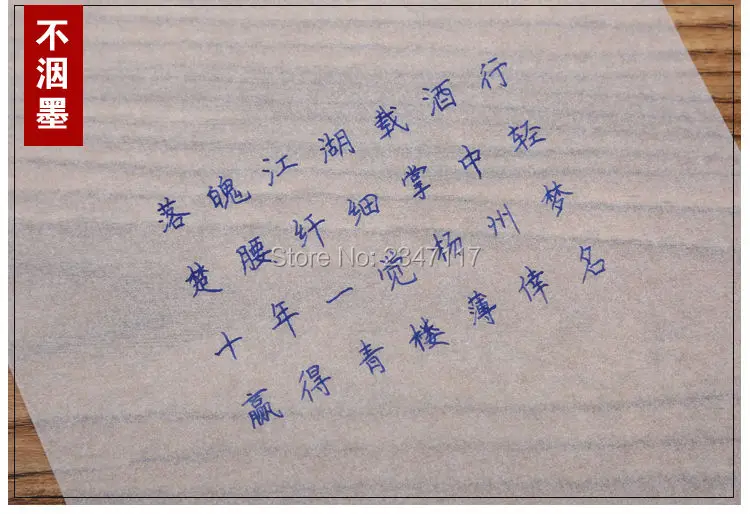 不洇墨
落魄江湖载酒行
楚腰纤细掌中轻
十年一觉杨州梦
赢得青楼薄倖名
Store No: 2347117